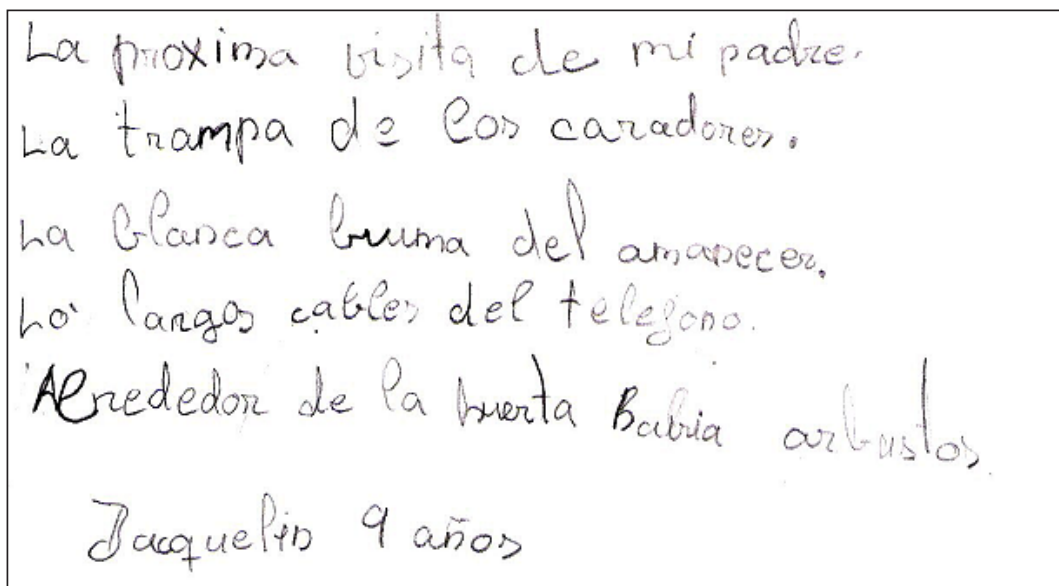 La proxima visita de mi padre.
La trampa de los caradores.
La blanca bruma del amanecer.
Lo largos cables del telefono.
Alrrededor de la huerta Babria arbustos
Jacquelin 9 años